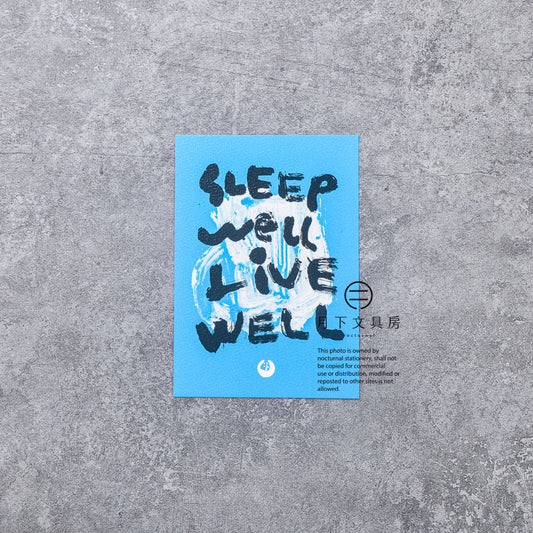 SLEEP
Well
LIVE
WELL
月下文具房
nocturnal
This photo is owned by
nocturnal stationery, shall not
be copied for commercial
use or distribution, modified or
reposted to other sites is not
allowed.